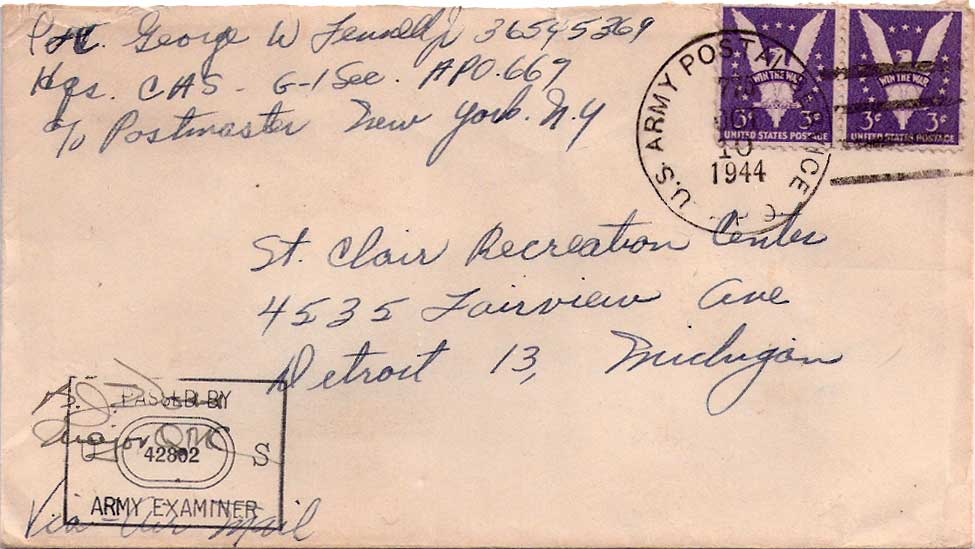 Pfc. George W Fennell Jr 36545369
Hqs. CAS - G-1 Sec. APO. 667
c/o Postmaster New York. N.Y
WIN THE WAR
3¢ 3¢
UNITED STATES POSTAGE
WIN THE WAR
3¢ 3¢
UNITED STATES POSTAGE
U.S. ARMY POSTAL SERVICE
10
1944
St. Clair Recreation Center
4535 Fairview Ave
Detroit 13, Michigan
PASSED BY
Major QMC
U 42802 S
ARMY EXAMINER
Via Air Mail